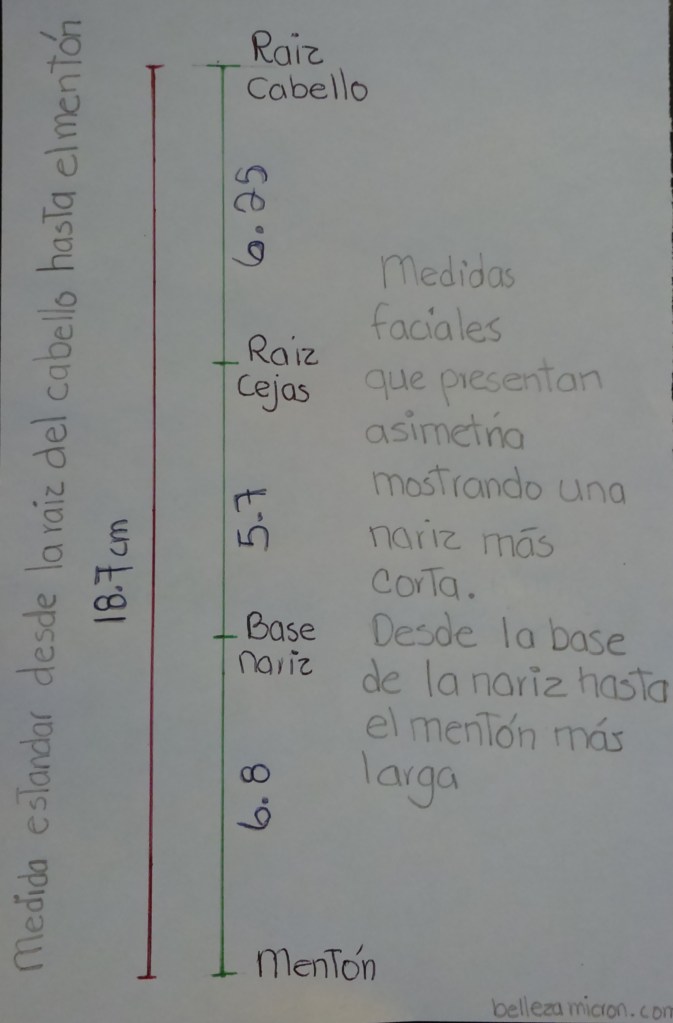 Medida estandar desde la raiz del cabello hasta el mentón
18.7 cm
Raiz
Cabello
6.25
Raiz
Cejas
5.7
Base
nariz
6.8
Mentón
Medidas
faciales
que presentan
asimetría
mostrando una
nariz más
corta.
Desde la base
de la nariz hasta
el mentón más
larga
bellezamicron.com